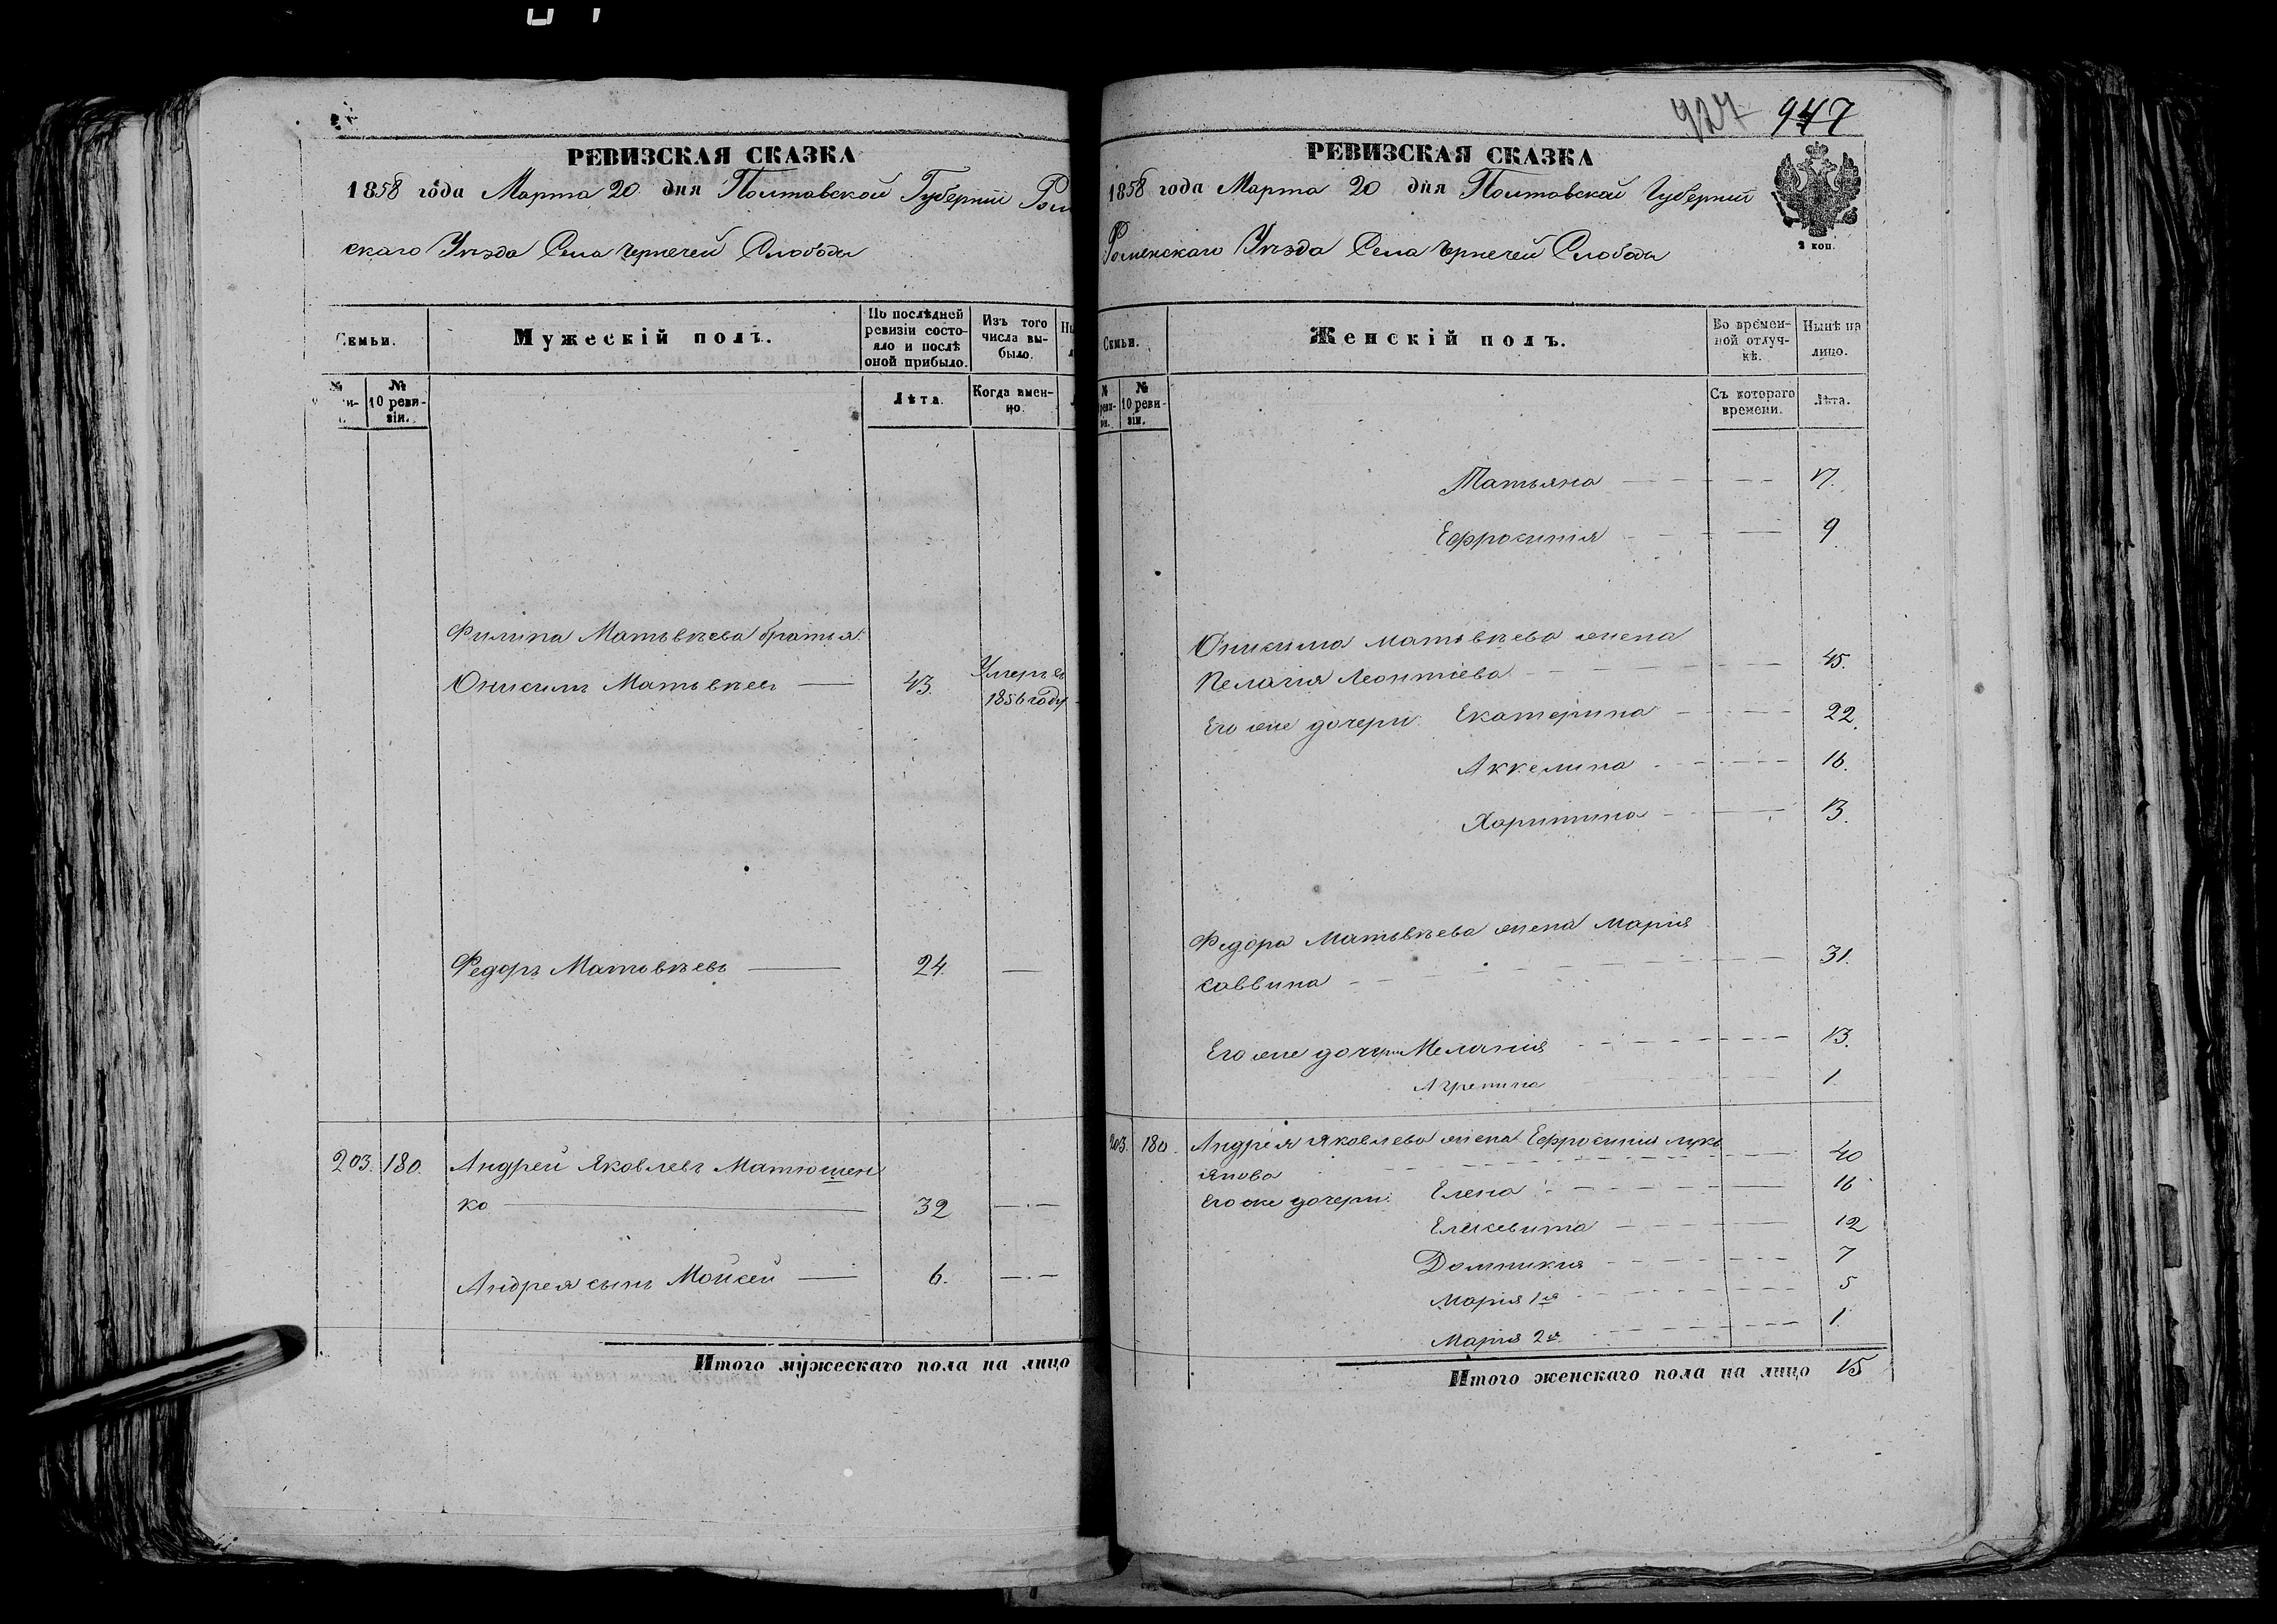 РЕВИЗСКАЯ СКАЗКА
1858 года Марта 20 дня Полтавской Губернии Ром
скаго Уѣзда Села Чернечей Слободы
Семьи.
Мужескій полъ.
По послѣдней ревизіи состояло и послѣ оной прибыло.
Изъ того числа выбыло.
№
№ 10 ревизіи.
Лѣта.
Когда имен-
но.
Филипа Матвѣева братья
Онисимъ Матвѣевъ — 43. Умеръ въ
1856 году
Федоръ Матвѣевъ — 24. —
203. 180. Андрей Яковлевъ Матюшен
ко — 32 —
Андрея сынъ Мойсей — 6. —
Итого мужескаго пола на лицо
927 947
РЕВИЗСКАЯ СКАЗКА
1858 года Марта 20 дня Полтавской Губерніи
Роменскаго Уѣзда Села Чернечей Слободы
2 коп.
Семьи.
Женскій полъ.
Во времен-
ной отлуч-
кѣ.
Нынѣ на
лицо.
№ 10 ревизіи.
Съ котораго
времени.
Лѣта.
Татьяна — 17.
Ефросинія — 9
Онисима Матвѣева жена
Пелагія Леонтіева — 45.
Его же дочери: Екатерина — 22.
Аккелина — 16.
Харитина — 13.
Федора Матвѣева жена Марія
Саввина — 31.
Его же дочери Меланія — 13.
Агрепина — 1.
203. 180. Андрея Яковлева жена Ефросинія Лукь
янова — 40
Его же дочери: Елена — 16
Елисевита — 12
Домникия — 7
Марія 1я — 5
Марія 2я — 1.
Итого женскаго пола на лицо 15